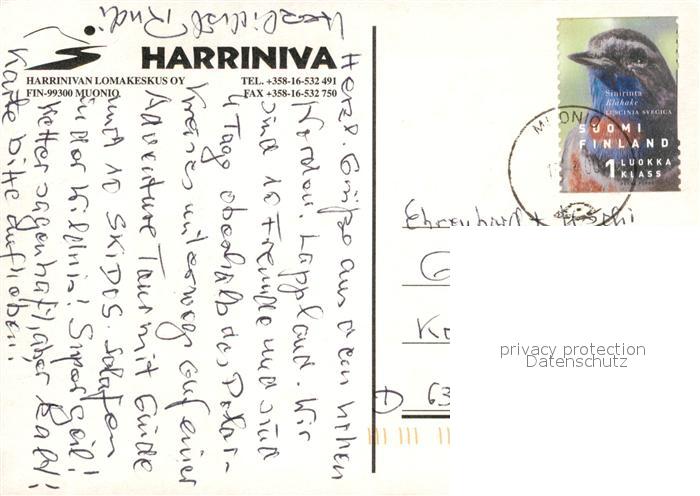 HARRINIVA
HARRINIVAN LOMAKESKUS OY
FIN-99300 MUONIO
TEL. +358-16-532 491
FAX +358-16-532 750
Herzl. Grüße aus dem hohen
Norden. Lappland. Wir
sind 10 Freunde und sind
4 Tage oberhalb des Polar-
Kreises unterwegs auf einer
Adventure Tour mit Guide
und 10 SKIDOS. Schlafen
in der Wildnis! Super Geil!
Wetter sagenhaft, aber kalt!!
Karte bitte aufheben!!
Herzlichst Rudi
Sinirinta
Blåhake
LUSCINIA SVECICA
SUOMI
FINLAND
1 LUOKKA
KLASS
MUONIO
Ehrenhard +
D 63
privacy protection
Datenschutz